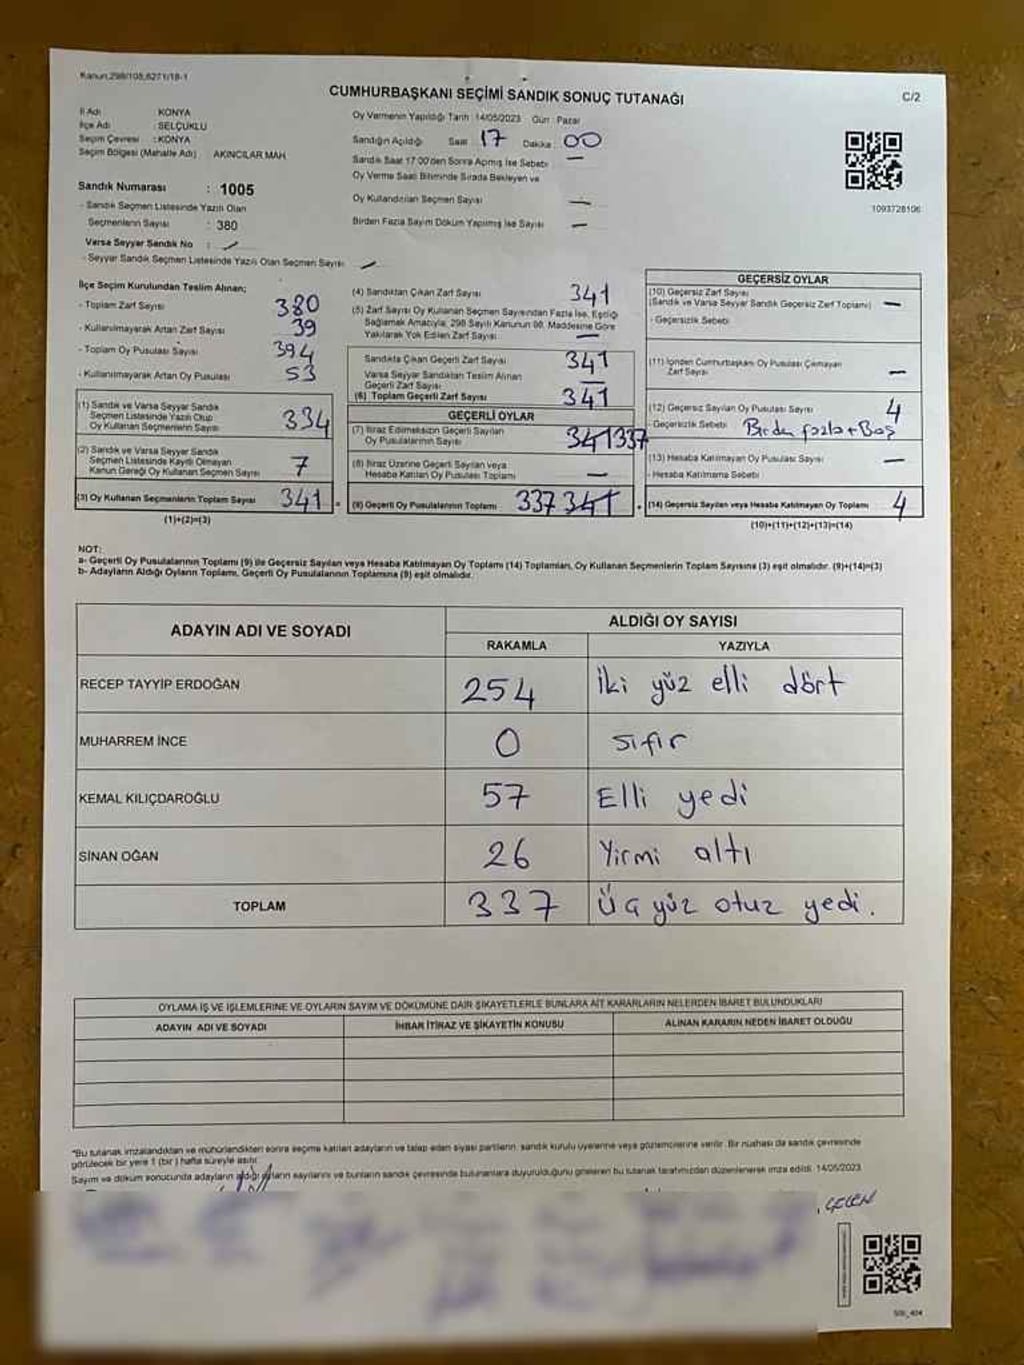 Kanun,298/105,6271/18-1
CUMHURBAŞKANI SEÇİMİ SANDIK SONUÇ TUTANAĞI
C/2
İl Adı : KONYA
İlçe Adı : SELÇUKLU
Seçim Çevresi : KONYA
Seçim Bölgesi (Mahalle Adı) AKINCILAR MAH.
Sandık Numarası : 1005
- Sandık Seçmen Listesinde Yazılı Olan
Seçmenlerin Sayısı : 380
Varsa Seyyar Sandık No : -
- Seyyar Sandık Seçmen Listesinde Yazılı Olan Seçmen Sayısı -
Oy Vermenin Yapıldığı Tarih 14/05/2023 Gün : Pazar
Sandığın Açıldığı Saat 17 Dakika 00
Sandık Saat 17:00'den Sonra Açmış İse Sebebi -
Oy Verme Saati Bitiminde Sırada Bekleyen ve
Oy Kullandırılan Seçmen Sayısı -
Birden Fazla Sayım Döküm Yapılmış İse Sayısı -
1093728106
İlçe Seçim Kurulundan Teslim Alınan;
- Toplam Zarf Sayısı 380
- Kullanılmayarak Artan Zarf Sayısı 39
- Toplam Oy Pusulası Sayısı 394
- Kullanılmayarak Artan Oy Pusulası 53
(1) Sandık ve Varsa Seyyar Sandık
Seçmen Listesinde Yazılı Olup
Oy Kullanan Seçmenlerin Sayısı 334
(2) Sandık ve Varsa Seyyar Sandık
Seçmen Listesinde Kayıtlı Olmayan
Kanun Gereği Oy Kullanan Seçmen Sayısı 7
(3) Oy Kullanan Seçmenlerin Toplam Sayısı 341
(1)+(2)=(3)
(4) Sandıktan Çıkan Zarf Sayısı 341
(5) Zarf Sayısı Oy Kullanan Seçmen Sayısından Fazla İse, Eşitliği
Sağlamak Amacıyla, 298 Sayılı Kanunun 98. Maddesine Göre
Yakılarak Yok Edilen Zarf Sayısı -
Sandıkta Çıkan Geçerli Zarf Sayısı 341
Varsa Seyyar Sandıktan Teslim Alınan
Geçerli Zarf Sayısı -
(6) Toplam Geçerli Zarf Sayısı 341
GEÇERLİ OYLAR
(7) İtiraz Edilmeksizin Geçerli Sayılan
Oy Pusulalarının Sayısı 341 337
(8) İtiraz Üzerine Geçerli Sayılan veya
Hesaba Katılan Oy Pusulası Toplamı -
(9) Geçerli Oy Pusulalarının Toplamı 337 341
GEÇERSİZ OYLAR
(10) Geçersiz Zarf Sayısı
(Sandık ve Varsa Seyyar Sandık Geçersiz Zarf Toplamı) -
- Geçersizlik Sebebi
(11) İçinden Cumhurbaşkanı Oy Pusulası Çıkmayan
Zarf Sayısı -
(12) Geçersiz Sayılan Oy Pusulası Sayısı 4
- Geçersizlik Sebebi Birden fazla + Boş
(13) Hesaba Katılmayan Oy Pusulası Sayısı -
- Hesaba Katılmama Sebebi
(14) Geçersiz Sayılan veya Hesaba Katılmayan Oy Toplamı 4
(10)+(11)+(12)+(13)=(14)
NOT:
a- Geçerli Oy Pusulalarının Toplamı (9) ile Geçersiz Sayılan veya Hesaba Katılmayan Oy Toplamı (14) Toplamları, Oy Kullanan Seçmenlerin Toplam Sayısına (3) eşit olmalıdır. (9)+(14)=(3)
b- Adayların Aldığı Oyların Toplamı, Geçerli Oy Pusulalarının Toplamına (9) eşit olmalıdır.
ADAYIN ADI VE SOYADI
ALDIĞI OY SAYISI
RAKAMLA YAZIYLA
RECEP TAYYİP ERDOĞAN 254 İki yüz elli dört
MUHARREM İNCE 0 sıfır
KEMAL KILIÇDAROĞLU 57 Elli yedi
SİNAN OĞAN 26 Yirmi altı
TOPLAM 337 Üç yüz otuz yedi.
OYLAMA İŞ VE İŞLEMLERİNE VE OYLARIN SAYIM VE DÖKÜMÜNE DAİR ŞİKAYETLERLE BUNLARA AİT KARARLARIN NELERDEN İBARET BULUNDUKLARI
ADAYIN ADI VE SOYADI İHBAR İTİRAZ VE ŞİKAYETİN KONUSU ALINAN KARARIN NEDEN İBARET OLDUĞU
*Bu tutanak imzalandıktan ve mühürlendikten sonra seçime katılan adayların ve talep eden siyasi partilerin, sandık kurulu üyelerine veya gözlemcilerine verilir. Bir nüshası da sandık çevresinde
görülecek bir yere 1 (bir) hafta süreyle asılır.
Sayım ve döküm sonucunda adayların aldığı oyların sayılarını ve bunların sandık çevresinde bulunanlara duyurulduğunu gösteren bu tutanak tarafımızdan düzenlenerek imza edildi. 14/05/2023